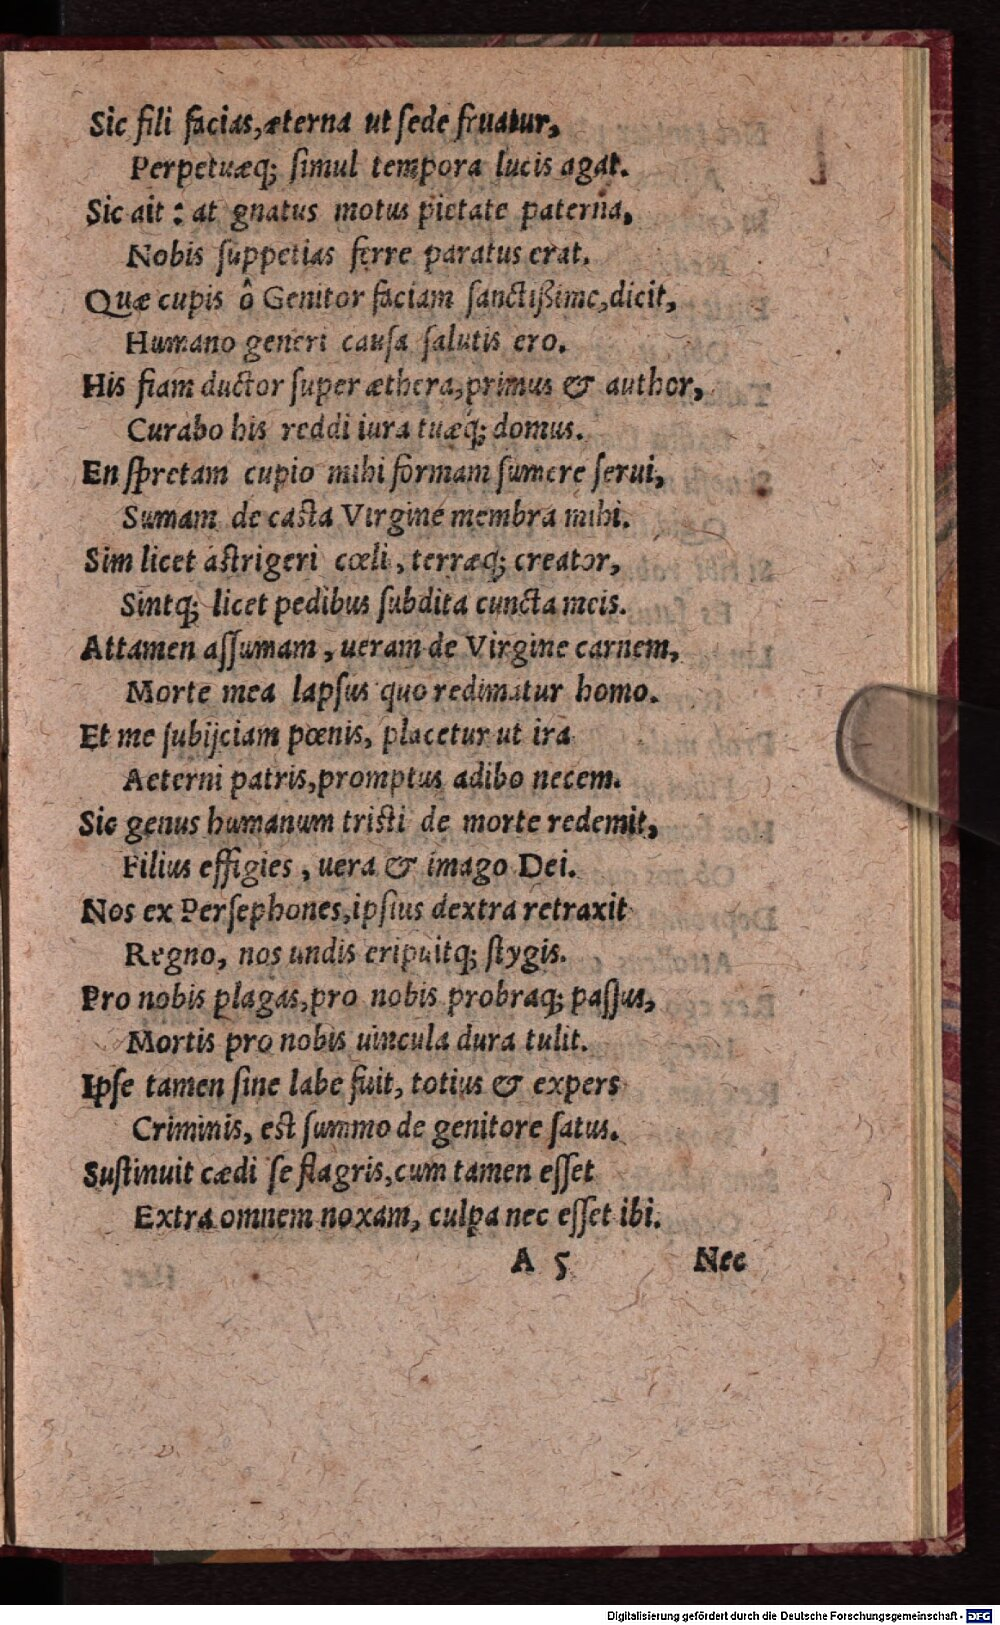 Sic fili facias,æterna ut ſede fruatur,
Perpetuæq; ſimul tempora lucis agat.
Sic ait : at gnatus motus pietate paterna,
Nobis ſuppetias ferre paratus erat.
Quæ cupis ô Genitor faciam ſanctißime,dicit,
Humano generi cauſa ſalutis ero.
His fiam ductor ſuper æthera,primus & author,
Curabo his reddi iura tuæq́; domus.
En ſpretam cupio mihi formam ſumere ſerui,
Sumam de caſta Virgine membra mihi.
Sim licet aſtrigeri cœli, terræq; creator,
Sintq; licet pedibus ſubdita cuncta meis.
Attamen aſſumam, ueram de Virgine carnem,
Morte mea lapſus quo redimatur homo.
Et me ſubijciam pœnis, placetur ut ira
Aeterni patris,promptus adibo necem.
Sic genus humanum triſti de morte redemit,
Filius effigies, uera & imago Dei.
Nos ex Perſephones,ipſius dextra retraxit
Regno, nos undis eripuitq; ſtygis.
Pro nobis plagas,pro nobis probraq; paſſus,
Mortis pro nobis uincula dura tulit.
Ipſe tamen ſine labe fuit, totius & expers
Criminis, eſt ſummo de genitore ſatus.
Suſtinuit cædi ſe flagris,cum tamen eſſet
Extra omnem noxam, culpa nec eſſet ibi.
A 5 Nec
Digitalisierung gefördert durch die Deutsche Forschungsgemeinschaft - DFG